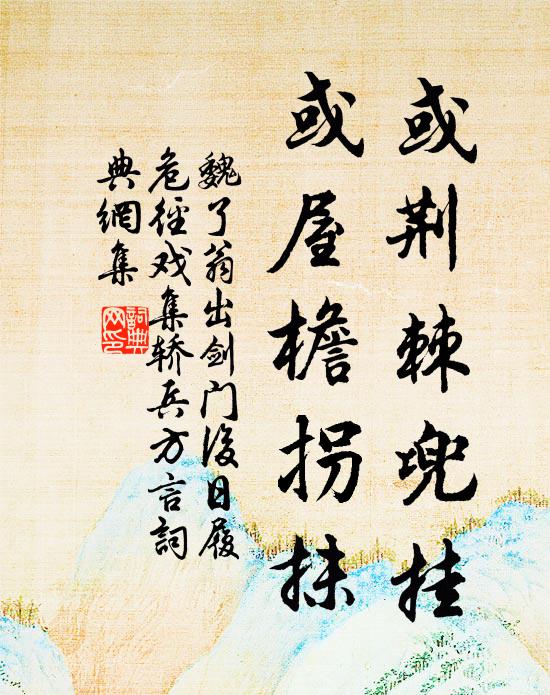 或荆棘兜挂
或屋檐拐抹
魏了翁出剑门后日履
危径戏集轿兵方言詞
典網集
詞典
网印